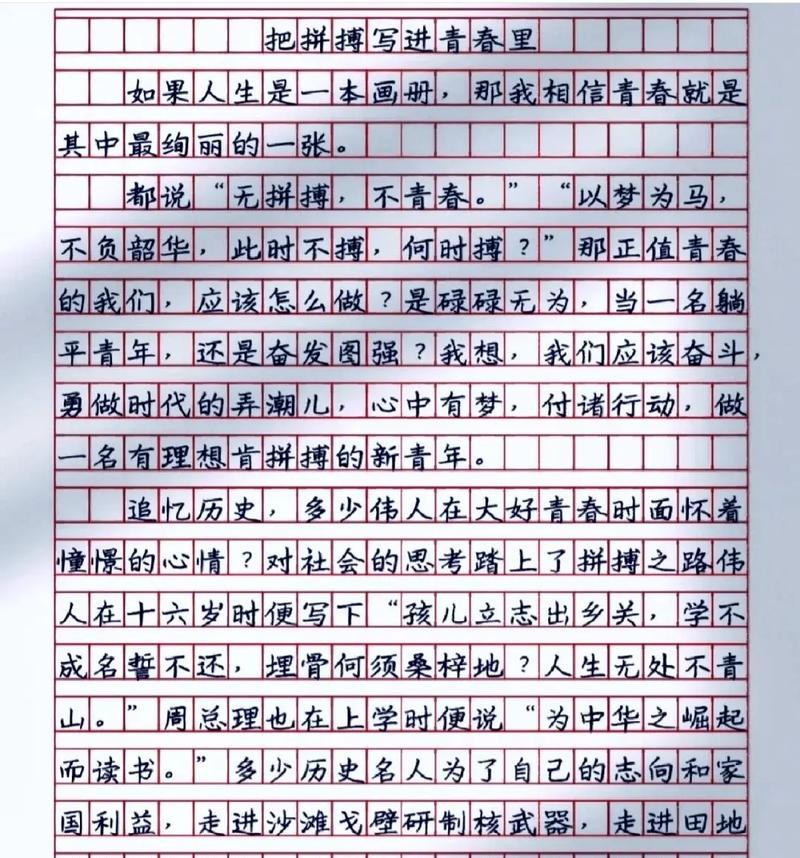 把拼搏写进青春里
如果人生是一本画册，那我相信青春就是
其中最绚丽的一张。
都说“无拼搏，不青春。”“以梦为马，
不负韶华，此时不搏，何时搏？”那正值青春
的我们，应该怎么做？是碌碌无为，当一名躺
平青年，还是奋发图强？我想，我们应该奋斗，
勇做时代的弄潮儿，心中有梦，付诸行动，做
一名有理想肯拼搏的新青年。
追忆历史，多少伟人在大好青春时面怀着
憧憬的心情？对社会的思考踏上了拼搏之路伟
人在十六岁时便写下“孩儿立志出乡关，学不
成名誓不还，埋骨何须桑梓地？人生无处不青
山。”周总理也在上学时便说“为中华之崛起
而读书。”多少历史名人为了自己的志向和家
国利益，走进沙滩戈壁研制核武器，走进田地